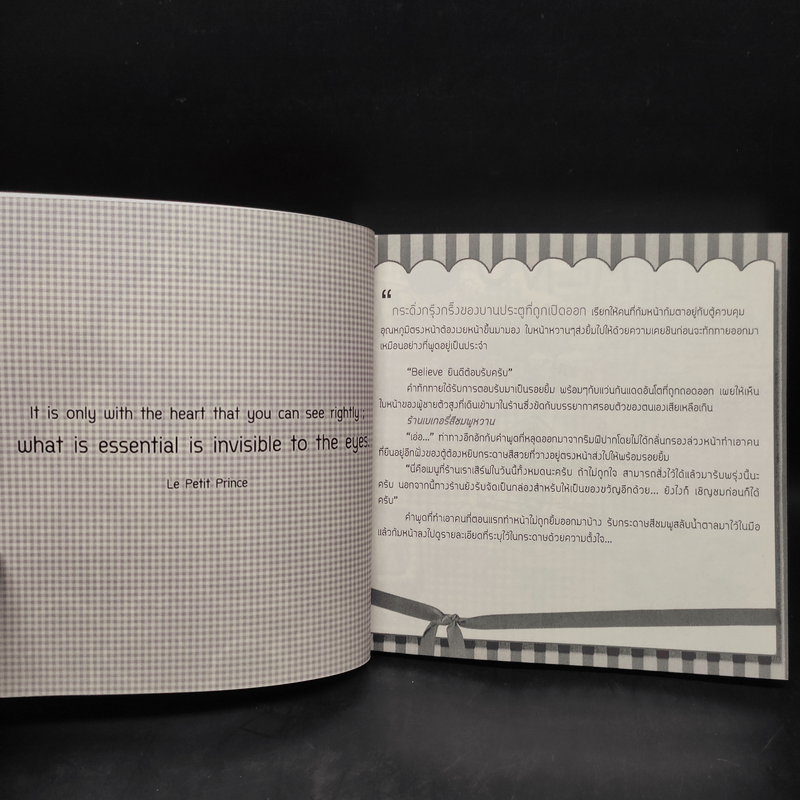 It is only with the heart that you can see rightly ;
what is essential is invisible to the eyes..
Le Petit Prince
“
กระดิ่งกรุ๊งกริ๊งของบานประตูที่ถูกเปิดออก เรียกให้คนที่ก้มหน้าก้มตาอยู่กับตู้ควบคุม
อุณหภูมิตรงหน้าต้องเงยหน้าขึ้นมามอง ใบหน้าหวานๆส่งยิ้มไปให้ด้วยความเคยชินก่อนจะทักทายออกมา
เหมือนอย่างที่พูดอยู่เป็นประจำ
“Believe ยินดีต้อนรับครับ”
คำทักทายได้รับการตอบรับมาเป็นรอยยิ้ม พร้อมๆกับแว่นกันแดดอันโตที่ถูกถอดออก เผยให้เห็น
ใบหน้าของผู้ชายตัวสูงที่เดินเข้ามาในร้านซึ่งขัดกับบรรยากาศรอบตัวของตนเองเสียเหลือเกิน
ร้านเบเกอรี่สีชมพูหวาน
“เอ่อ...” ท่าทางอึกอักกับคำพูดที่หลุดออกมาจากริมฝีปากโดยไม่ได้กลั่นกรองล่วงหน้าทำเอาคน
ที่ยืนอยู่อีกฝั่งของตู้ต้องหยิบกระดาษสีสวยที่วางอยู่ตรงหน้าส่งไปให้พร้อมรอยยิ้ม
“นี่คือเมนูที่ร้านเราเสิร์ฟในวันนี้ทั้งหมดนะครับ ถ้าไม่ถูกใจ สามารถสั่งไว้ได้แล้วมารับพรุ่งนี้นะ
ครับ นอกจากนี้ทางร้านยังรับจัดเป็นกล่องสำหรับให้เป็นของขวัญอีกด้วย... ยังไงก็ เชิญชมก่อนก็ได้
ครับ”
คำพูดที่ทำเอาคนที่ตอนแรกทำหน้าไม่ถูกยิ้มออกมาบ้าง รับกระดาษสีชมพูสลับน้ำตาลมาไว้ในมือ
แล้วก้มหน้าลงไปดูรายละเอียดที่ระบุไว้ในกระดาษด้วยความตั้งใจ...